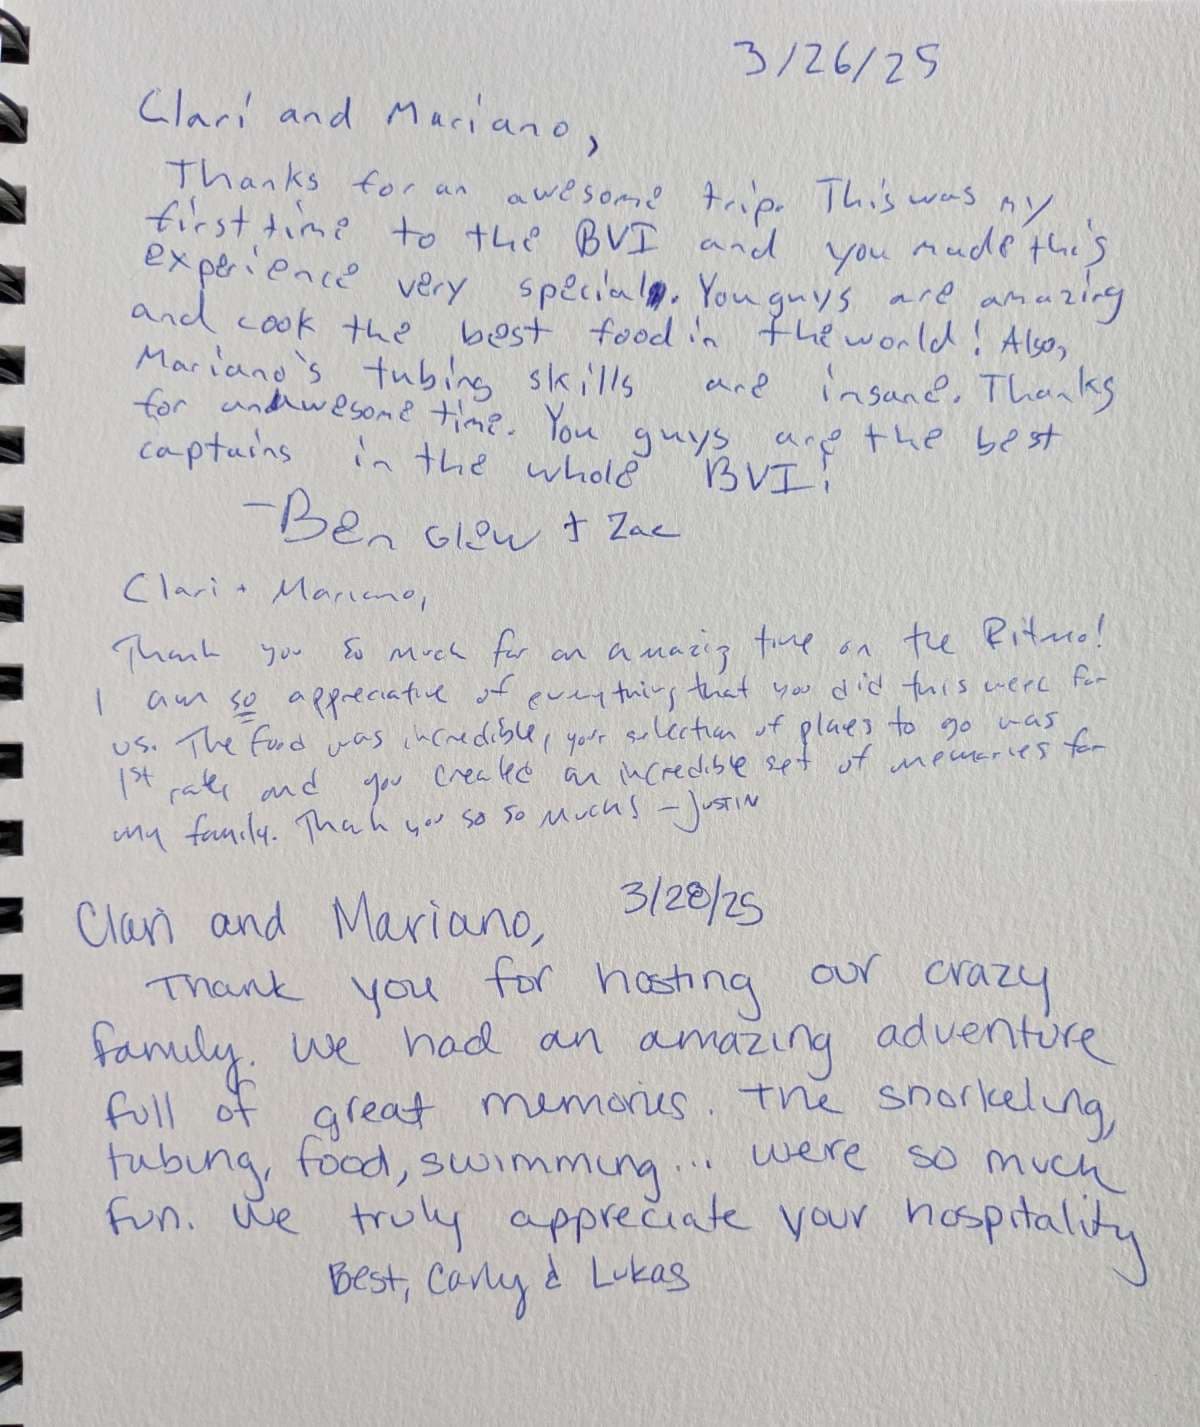 3/26/25
Clari and Mariano,
Thanks for an awesome trip. This was my
first time to the BVI and you made this
experience very special. You guys are amazing
and cook the best food in the world! Also,
Mariano's tubing skills are insane. Thanks
for an awesome time. You guys are the best
captains in the whole BVI!
- Ben Glew + Zac
Clari + Mariano,
Thank you so much for an amazing time on the Ritmo!
I am so appreciative of everything that you did this week for
us. The food was incredible, your selection of places to go was
1st rate and you created an incredible set of memories for
my family. Thank you so so much! - Justin
Clari and Mariano, 3/28/25
Thank you for hosting our crazy
family. We had an amazing adventure
full of great memories. The snorkeling,
tubing, food, swimming... were so much
fun. We truly appreciate your hospitality
Best, Carly & Lukas